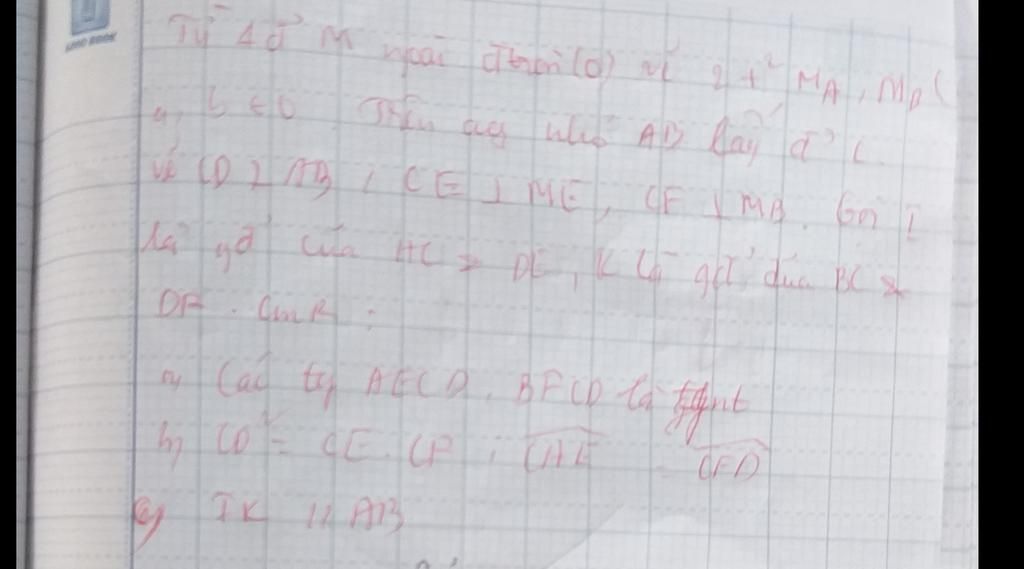 Từ 1 đ' M ngoài đtròn (O) vẽ 2 t² MA, MB (
Trên cung nhỏ AB lấy đ' C
vẽ CD ⊥ AB, CE ⊥ ME, CF ⊥ MB. Gọi I
là gđ' của AC & DE, K là gđ' của BC &
DF. CmR:
a, Các tg AECD, BFCD là tgnt
b, CD² = CE. CF,
c, IK // AB